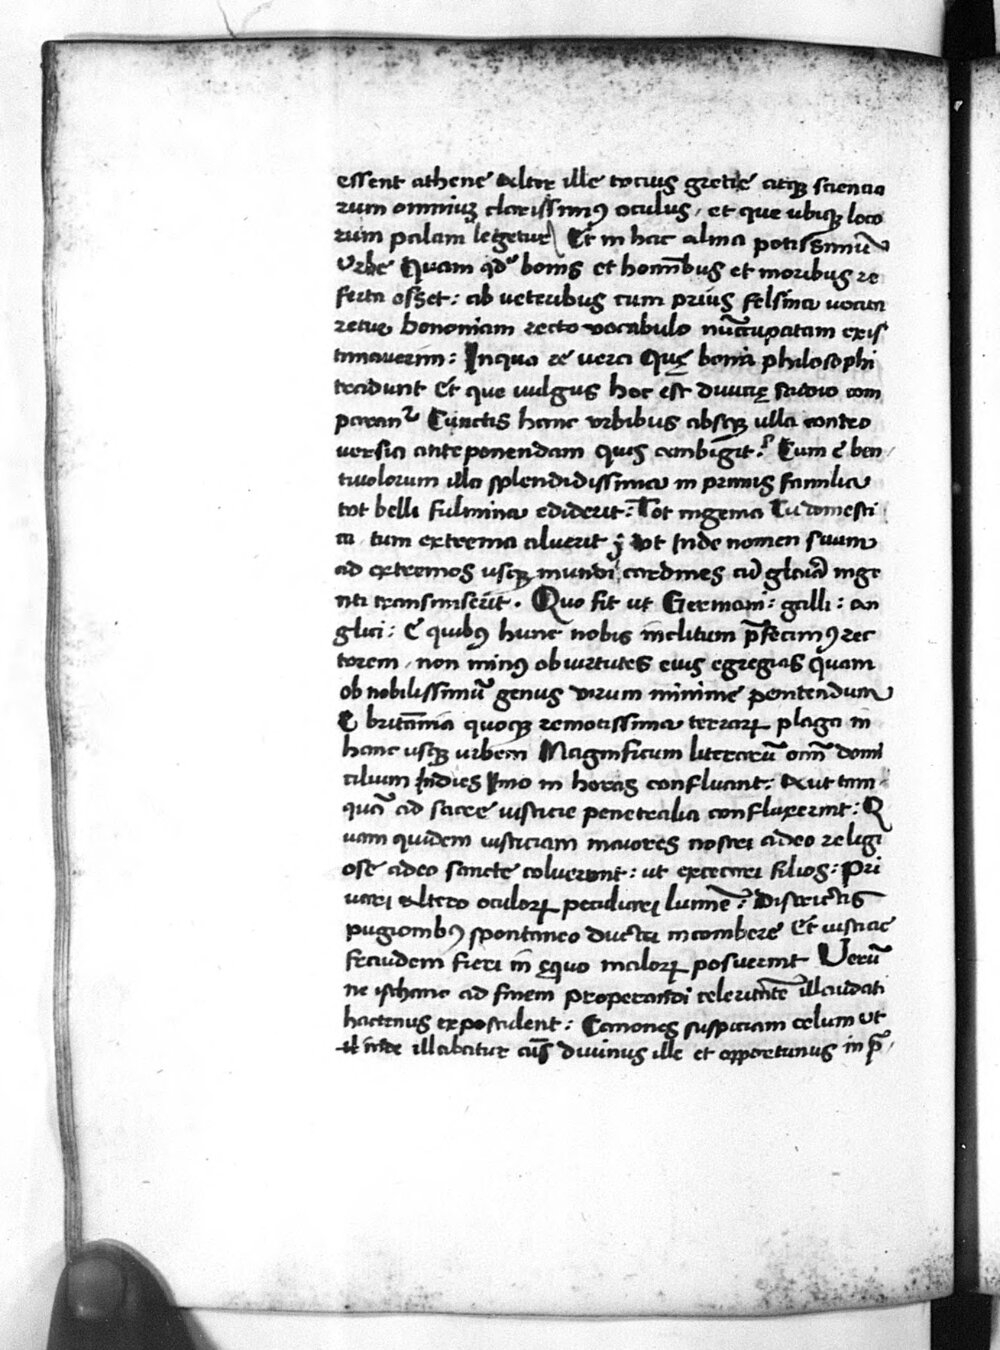 essent athene Alter ille tocius grecie atq̃ sciencia
rum omniuȝ clarissimꝰ oculus / et que ubiq̃ loco
rum palam legetur Et in hac alma potissimũ
Vrbe Quam qđ bonis et hominibus et moribus re
ferta esset : ab veteribus cum prius felsina vocita
retur bononiam recto vocabulo nũccupatam exis
timaverim : In qua re vera Quę bona philosophi
tradunt Et que vulgus hoc est
paranᷣ Cunctis hanc vrbibus absq̃ ulla contro
versia anteponendam quis ambigit ? Cum ẽ ben /
tivolorum illa splendidissima in primis familia
tot belli fulmina ediderit : Tot ingenia
tum extrema aluerit ut Inde nomen suum
ad extremos usq̃ mundi cardines cũ gloria inge
nti transmiserit . Quo fit ut Germani : galli : an
glici : E quibꝰ hunc nobis inclitum p̃fecimꝰ rec
torem / non minꝰ ob virtutes eius egregias quam
ob nobilissimũ genus virum minime penitendum
E britãnia quoq̃ remotissima terrarꝝ plaga in
hanc usq̃ urbem Magnificum literarũ om̃ domi
cilium Indies Imo in horas confluant : Aut tam /
quã ad sacre iusticie penetralia confluxerint : Q
uam quidem iusticiam maiores nostri adeo religi
ose adeo sancte coluerunt : ut excecari filios : Pri
vari Altero oculorꝝ peculiari lumẽe : Districtis
pugionibꝰ spontaneo ductu incombere Et iusticie
fraudem fieri in ęquo malorꝝ posuerint Verũ
ne ad finem properandi
hactenus expostulent : Canones suspiciam celum ut
illabatur divinus ille et opportunus in p̃ /